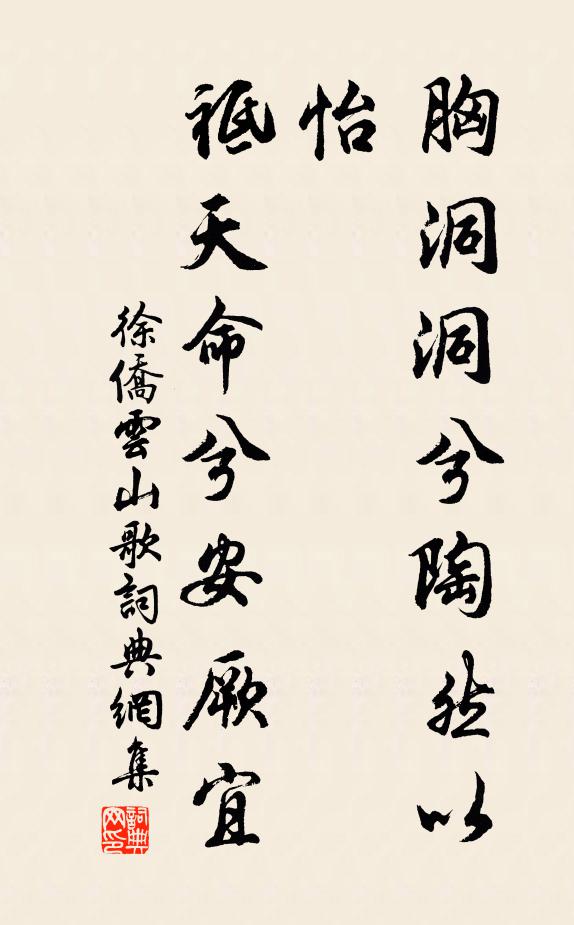 胸洞洞兮陶然以
怡
祗天命兮安厥宜
徐僑雲山歌詞典網集
詞典
網印